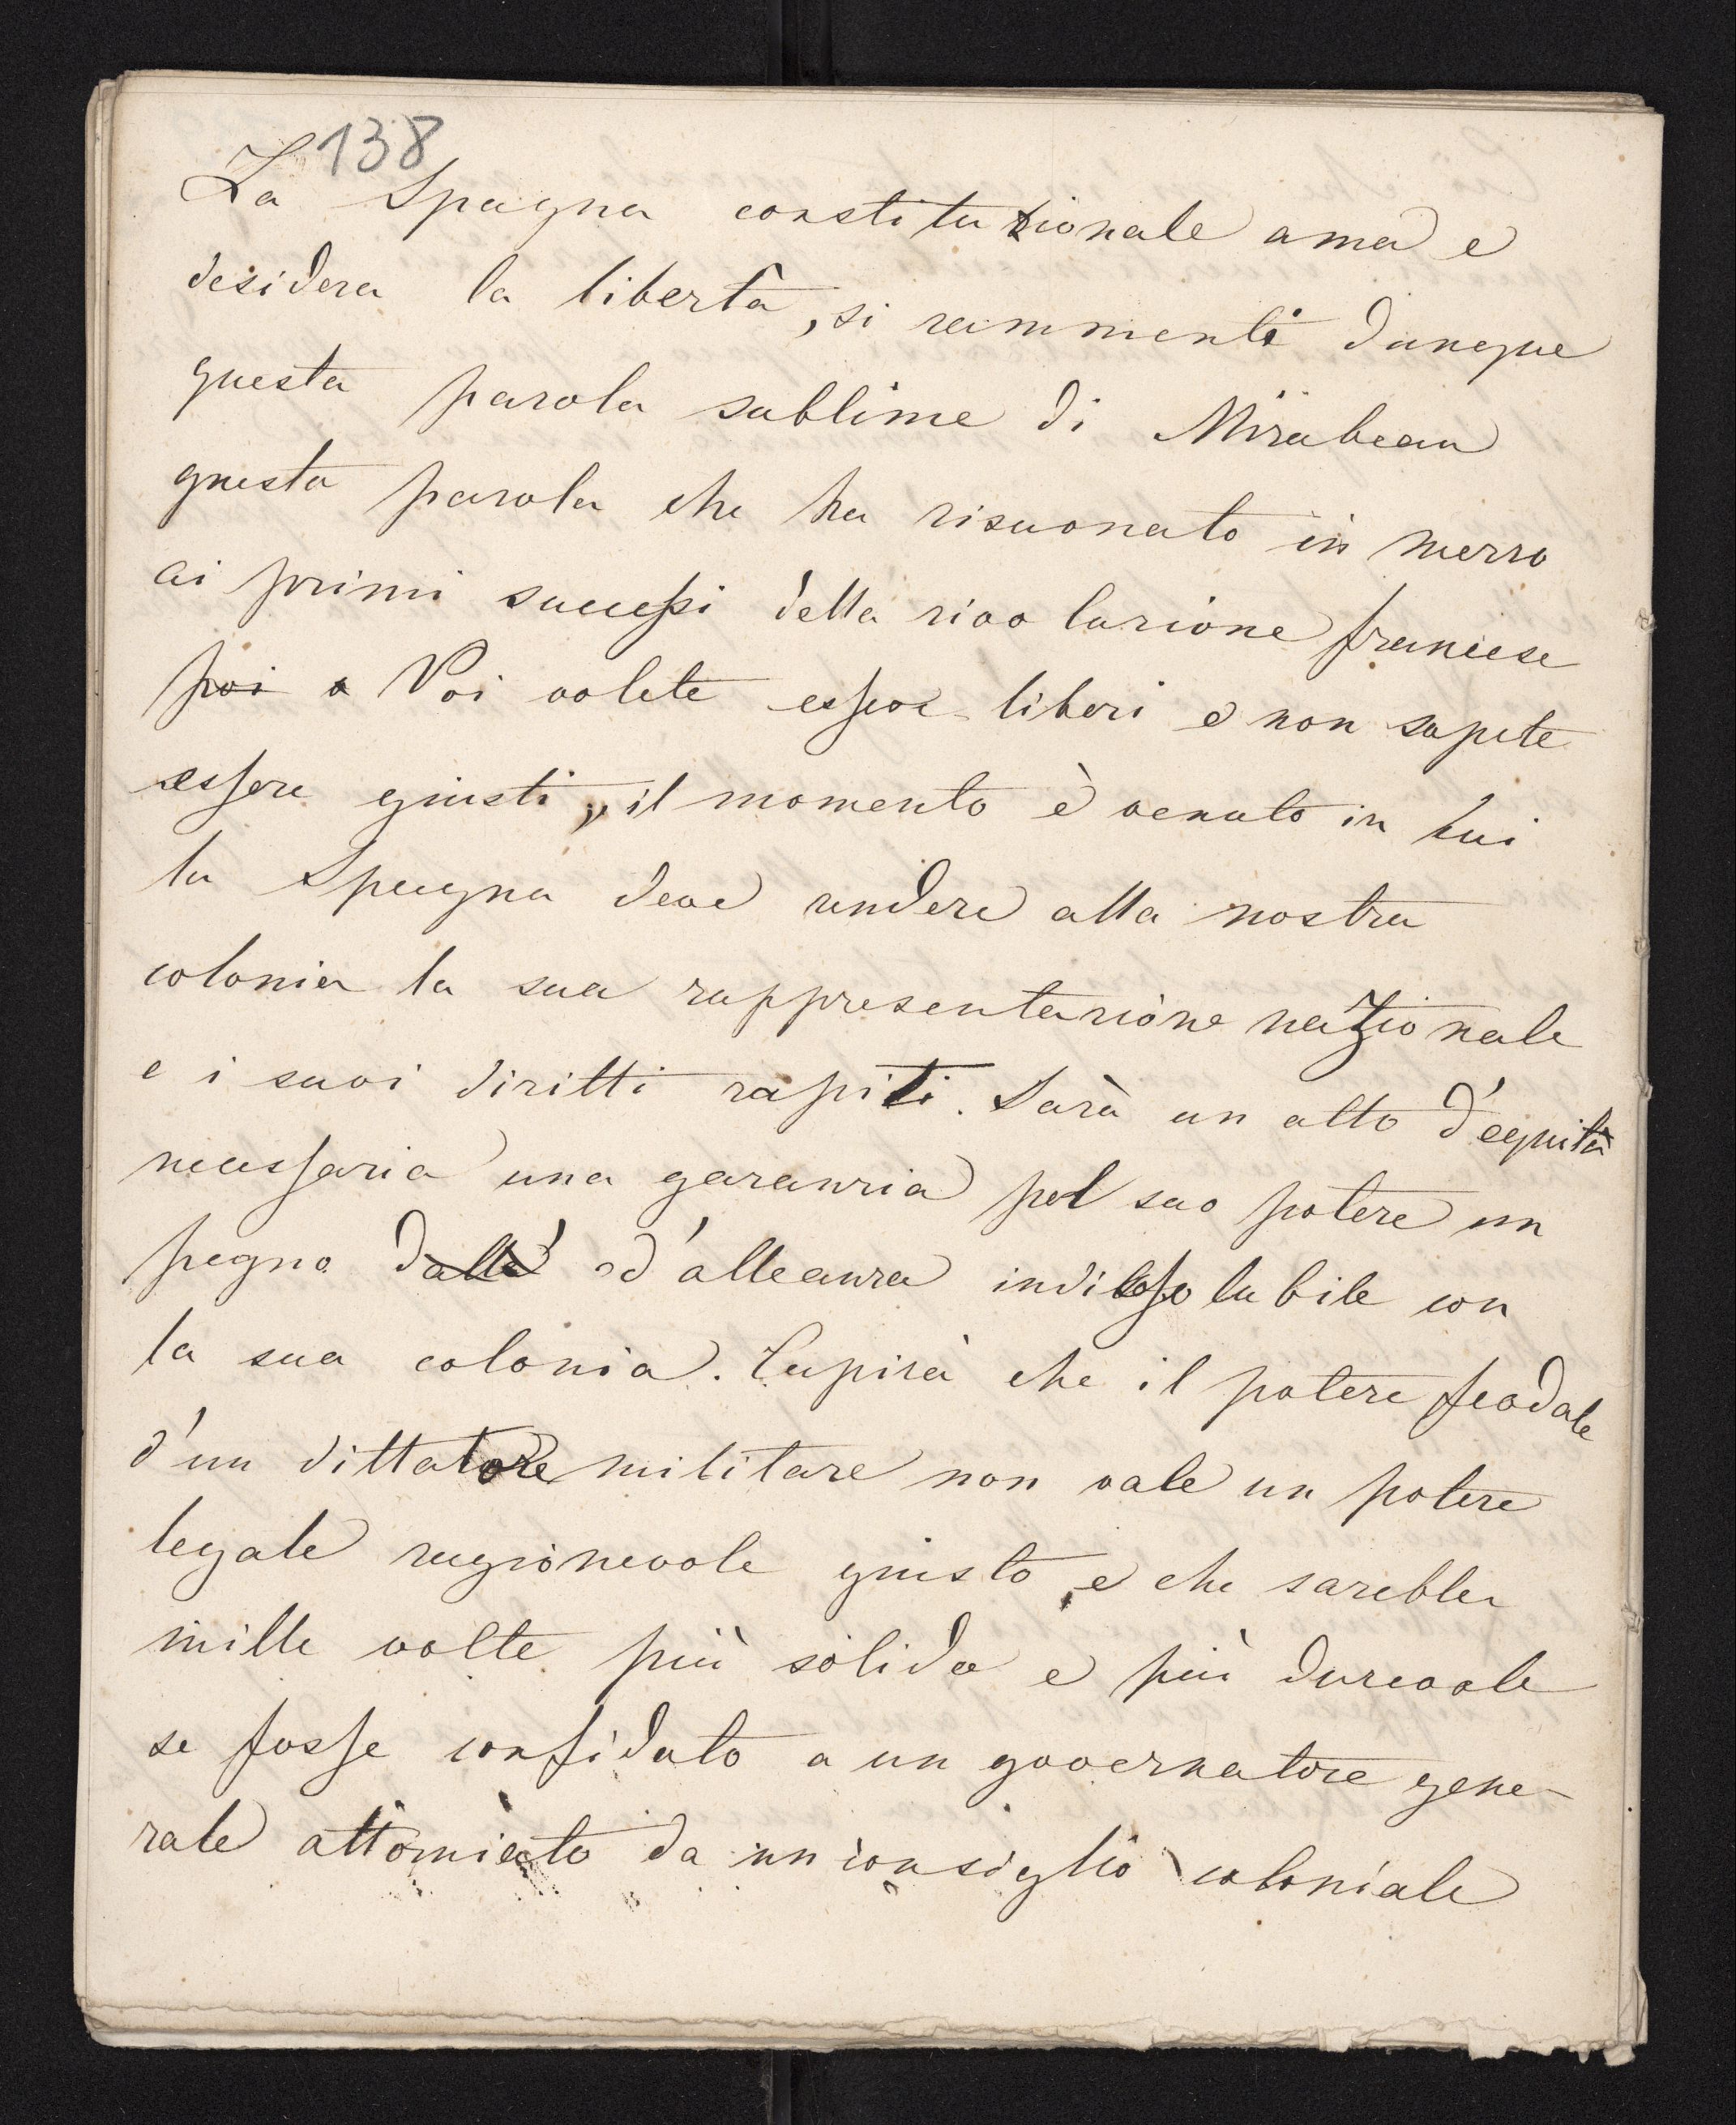 138
La Spagna constituzionale ama e
desidera la libertà, si rammenti dunque
questa parola sublime di Mirabeau
questa parola che ha risuonato in mezzo
ai primi successi della rivoluzione francese
poi a Voi volete essere liberi e non sapete
essere giusti,, il momento è venuto in cui
la Spagna deve rendere alla nostra
colonia la sua rappresentazione nazionale
e i suoi diritti rapiti. Sarà un atto d'equità
necessaria una garanzia pel suo potere un
pegno d'alleanza indissolubile con
la sua colonia. Capirà che il potere feodale
d'un dittatore militare non vale un potere
legale ragionevole giusto, e che sarebbe
mille volte più solido e più durevole
se fosse confidato a un governatore gene-
rale attorniato da un consiglio coloniale